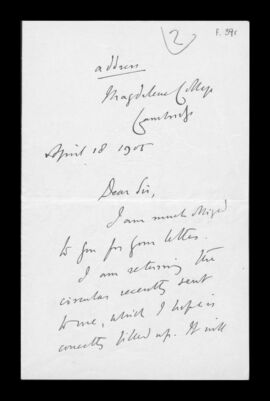 2
F. 39r
address
Magdalene College
Cambridge
April 18 1905
Dear Sir,
I am much obliged
to you for your letter.
I am returning the
circular recently sent
to me, which I hope is
correctly filled up. It will